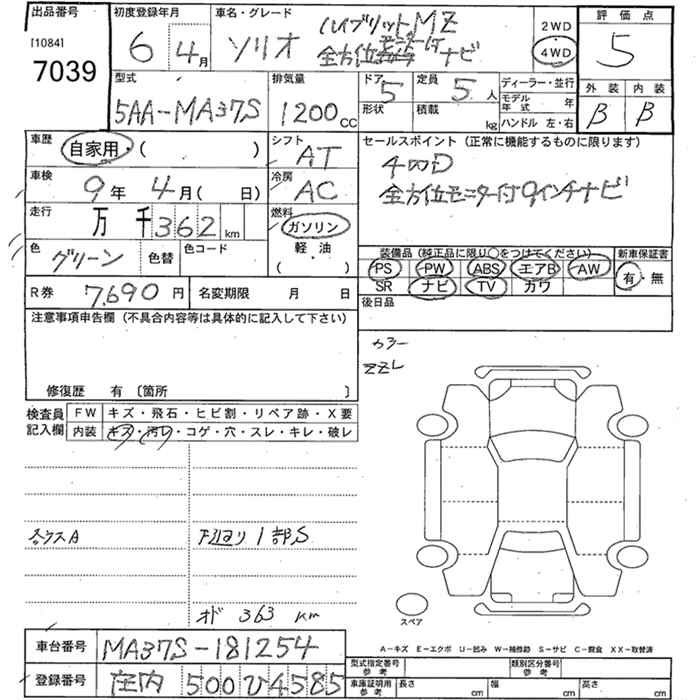 出品番号 初度登録年月 車名・グレード 2WD 評価点
[1084] 7039 6 4月 ソリオ ハイブリットMZ
全方位モニター付ナビ 4WD 5
型式 排気量 ドア 5 定員 5人 ディーラー・並行 外装 内装
5AA-MA37S 1200cc 形状 積載 kg モデル年式 年 B B
ハンドル 左・右
車歴 自家用・( ) シフト AT セールスポイント (正常に機能するものに限ります)
4WD
車検 9年 4月( 日) 冷房 AC 全方位モニター付9インチナビ
走行 万 千 362 km 燃料 ガソリン
軽・油
( )
色 グリーン 色替 色コード 装備品 (純正品に限り○をつけてください) 新車保証書
PS PW ABS エアB AW 有・無
SR ナビ TV カワ
R券 7,690円 名変期限 月 日 後日品
注意事項申告欄 (不具合内容等は具体的に記入して下さい)
カラー
ZZL
修復歴 有 〔箇所 〕
検査員記入欄 FW キズ・飛石・ヒビ割・リペア跡・X要
内装 キズ・汚レ・コゲ・穴・スレ・キレ・破レ
A 下廻り 1部S
オド 363 km
スペア
A-キズ E-エクボ U-凹み W-補修跡 S-サビ C-腐食 XX-取替済
車台番号 MA37S-181254
型式指定番号 参考 類別区分番号 参考
登録番号 庄内 500 ひ 4585
車庫証明用 参考 長さ cm 幅 cm 高さ cm